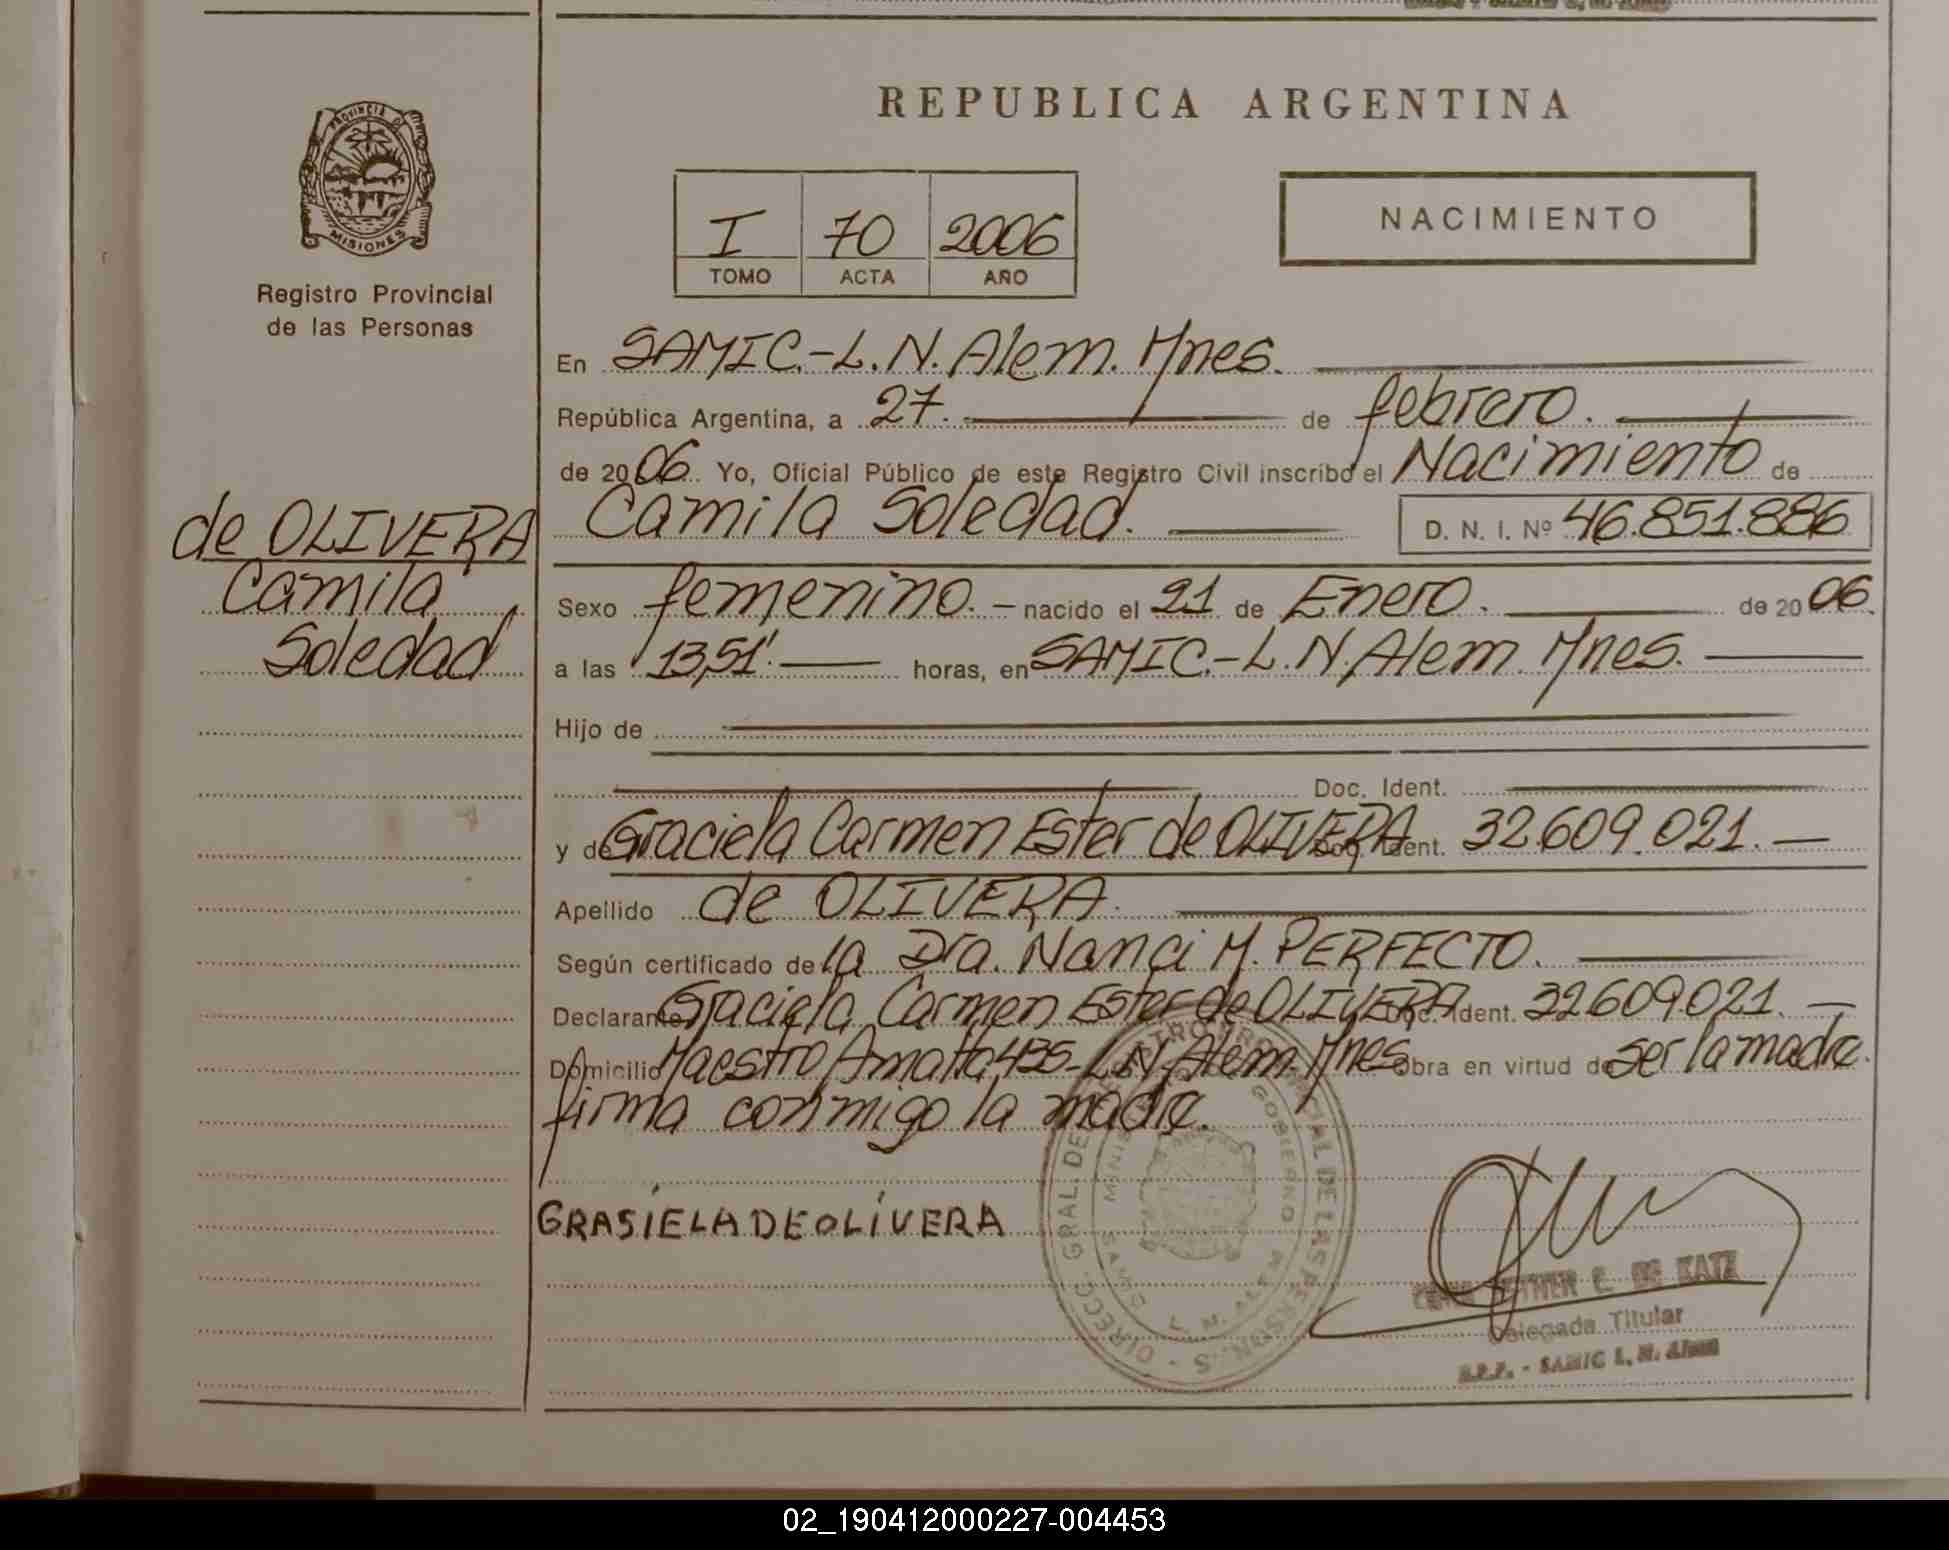 REPUBLICA ARGENTINA
PROVINCIA D
MISIONES
Registro Provincial
de las Personas
I 70 2006
TOMO ACTA AÑO
NACIMIENTO
En SAMIC.-L.N.Alem.Mnes.
República Argentina, a 27. de febrero.
de 2006. Yo, Oficial Público de este Registro Civil inscribo el Nacimiento de
de OLIVERA
Camila
Soledad
Camila Soledad. D. N. I. Nº 46.851.886
Sexo femenino.- nacido el 21 de Enero. de 2006.
a las 13,51'. horas, en SAMIC.-L.N.Alem.Mnes.
Hijo de
Doc. Ident.
y de Graciela Carmen Ester de OLIVERA Doc. Ident. 32.609.021.-
Apellido de OLIVERA.
Según certificado de la Dra. Nanci M. PERFECTO.
Declarante Graciela Carmen Ester de OLIVERA Doc. Ident. 32.609.021.-
Domicilio Maestro Amatta 435-L.N.Alem.Mnes. Obra en virtud de ser la madre.
firma conmigo la madre.
GRASIELA DE OLIVERA
DIRECC. GRAL. DE REGISTRO PROVINCIAL DE LAS PERSONAS
GOBIERNO
SAMIC
L. N. ALEM
ESTHER C. DE KATZ
Delegada Titular
R.P.P. - SAMIC L. N. Alem
02_190412000227-004453